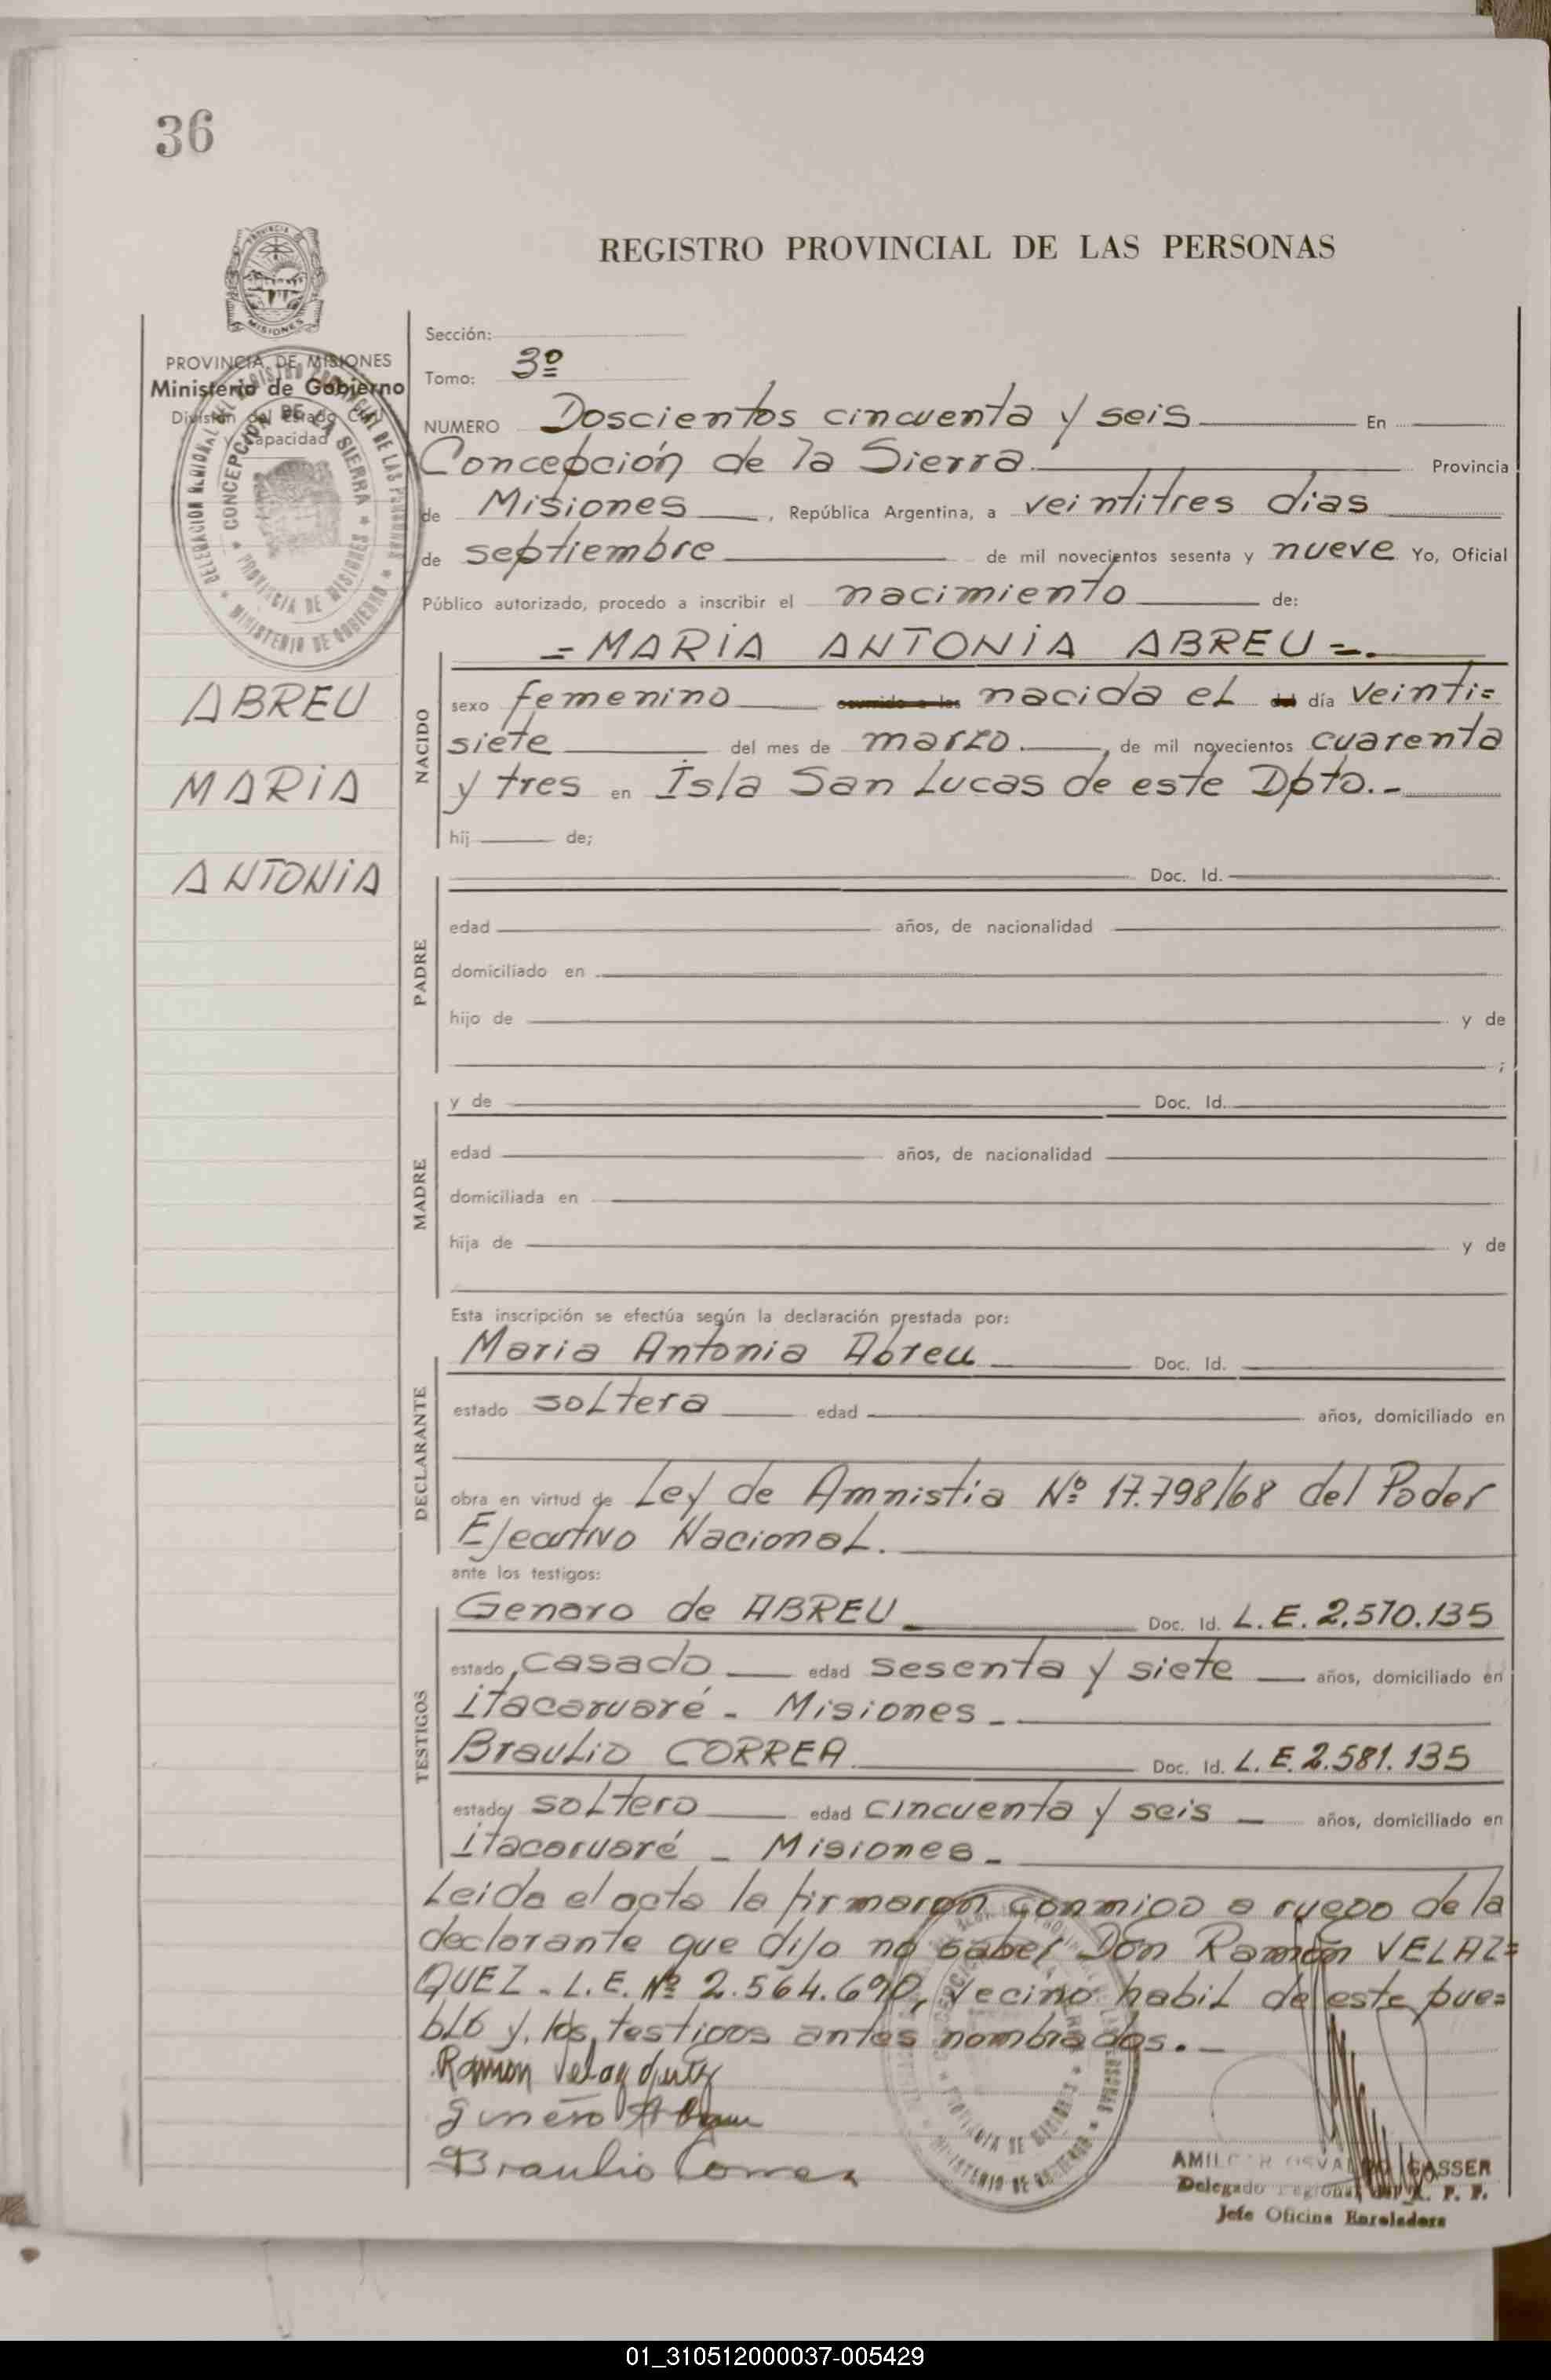 36
REGISTRO PROVINCIAL DE LAS PERSONAS
PROVINCIA
MISIONES
PROVINCIA DE MISIONES
Ministerio de Gobierno
División del Estado Civil
y Capacidad
DELEGACION REGIONAL DEL REGISTRO PROVINCIAL DE LAS PERSONAS * MINISTERIO DE GOBIERNO *
CONCEPCION DE LA SIERRA * PROVINCIA DE MISIONES *
ABREU
MARIA
ANTONIA
Sección:
Tomo: 3º
NUMERO Doscientos cincuenta y seis En
Concepción de la Sierra. Provincia
de Misiones, República Argentina, a veintitres dias
de septiembre de mil novecientos sesenta y nueve Yo, Oficial
Público autorizado, procedo a inscribir el nacimiento de:
NACIDO
= MARIA ANTONIA ABREU =.
sexo femenino ocurrido a las nacida el del día veinti=
siete del mes de marzo., de mil novecientos cuarenta
y tres en Isla San Lucas de este Dpto.-
hij de;
PADRE
Doc. Id.
edad años, de nacionalidad
domiciliado en
hijo de y de
;
MADRE
y de Doc. Id.
edad años, de nacionalidad
domiciliada en
hija de y de
Esta inscripción se efectúa según la declaración prestada por:
DECLARANTE
Maria Antonia Abreu Doc. Id.
estado soltera edad años, domiciliado en
obra en virtud de Ley de Amnistia Nº 17.798/68 del Poder
Ejecutivo Nacional.
ante los testigos:
TESTIGOS
Genaro de ABREU Doc. Id. L.E. 2.570.135
estado, casado edad sesenta y siete años, domiciliado en
itacaruaré - Misiones -
Braulio CORREA Doc. Id. L.E. 2.581.135
estado, soltero edad cincuenta y seis años, domiciliado en
itacaruaré - Misiones -
Leida el acta la firmaron conmigo a ruego de la
declarante que dijo no saber Don Ramón VELAZ=
QUEZ - L.E. Nº 2.564.690, vecino habil de este pue=
blo y los testigos antes nombrados. -
Ramón Velazquez
Braulio Correa
AMILCAR OSVALDO GASSER
Delegado Regional del R. P. P.
Jefe Oficina Enroladora
01_310512000037-005429